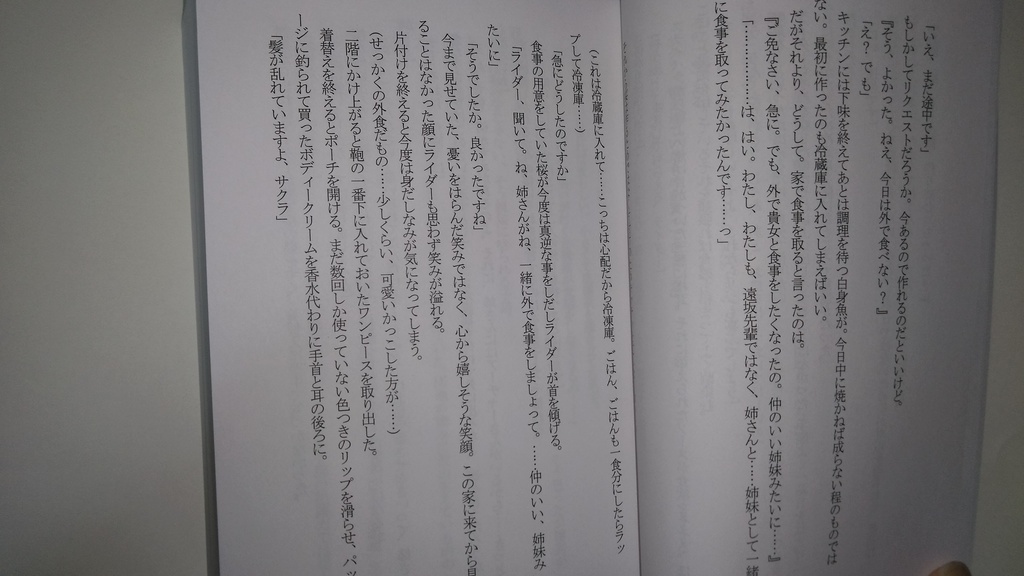 「いえ、まだ途中です」
もしかしてリクエストだろうか。今あるので作れるのだといいけど。
『そう、よかった。ねえ、今日は外で食べない？』
「え？　でも」
キッチンには下味を終えてあとは調理を待つ白身魚が。今日中に焼かねば成らない程のものでは
ない。最初に作ったのも冷蔵庫に入れてしまえばいい。
だがそれより、どうして。家で食事を取ると言ったのは。
『ご免なさい、急に。でも、外で貴女と食事をしたくなったの。仲のいい姉妹みたいに……』
「……………は、はい。わたし、わたしも、遠坂先輩ではなく、姉さんと……姉妹として一緒
に食事を取ってみたかったんです……っ」
（これは冷蔵庫に入れて……こっちは心配だから冷凍庫。ごはん、ごはんも一食分にしたらラッ
プして冷凍庫……）
「急にどうしたのですか」
食事の用意をしていた桜が今度は真逆な事をしだしライダーが首を傾げる。
「ライダー、聞いて。ね、姉さんがね、一緒に外で食事をしましょって。……仲のいい、姉妹み
たいに」
「そうでしたか。良かったですね」
今まで見せていた、憂いをはらんだ笑みではなく、心から嬉しそうな笑顔。この家に来てから見
ることはなかった顔にライダーも思わず笑みが溢れる。
片付けを終えると今度は身だしなみが気になってしまう。
（せっかくの外食だもの……少しくらい、可愛いかっこした方が……）
二階にかけ上がると鞄の一番下に入れておいたワンピースを取り出した。
着替えを終えるとポーチを開ける。まだ数回しか使っていない色つきのリップを滑らせ、パッ
ージに釣られて買ったボディークリームを香水代わりに手首と耳の後ろに。
「髪が乱れていますよ、サクラ」